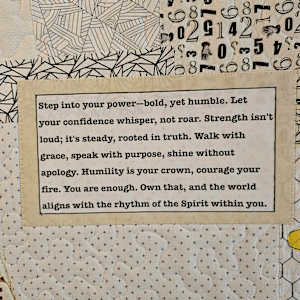 Step into your power—bold, yet humble. Let
your confidence whisper, not roar. Strength isn't
loud; it's steady, rooted in truth. Walk with
grace, speak with purpose, shine without
apology. Humility is your crown, courage your
fire. You are enough. Own that, and the world
aligns with the rhythm of the Spirit within you.